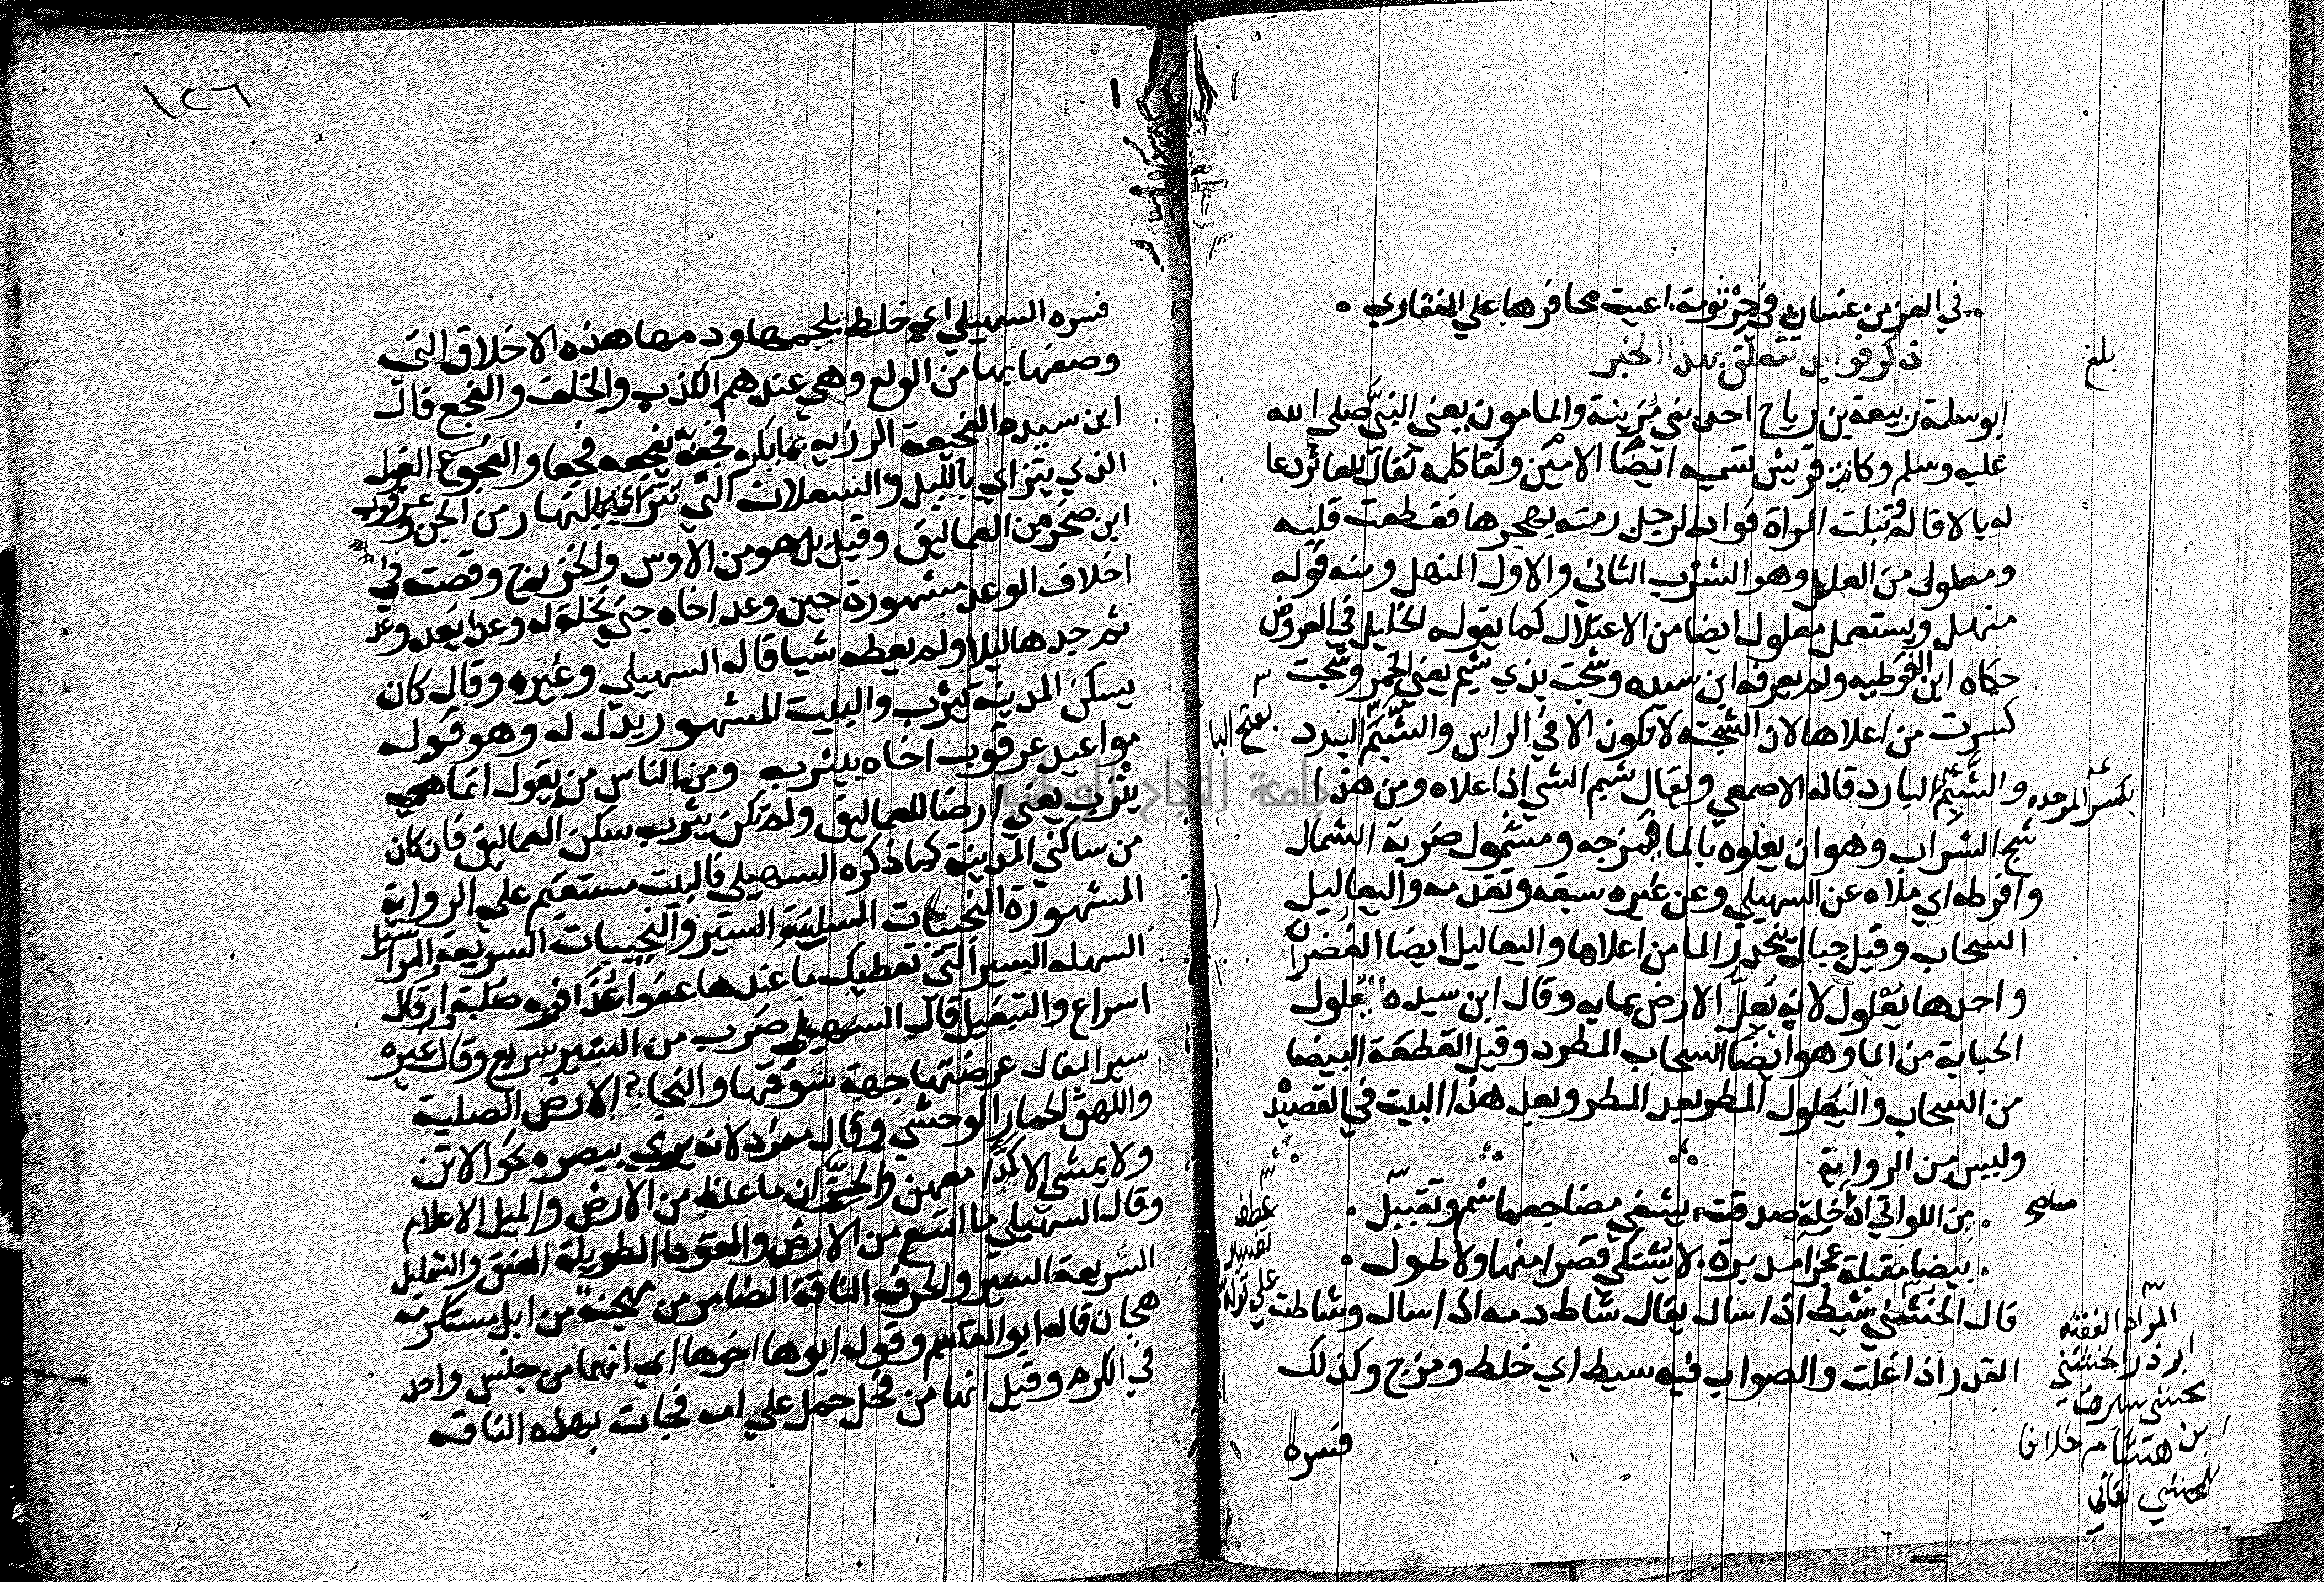 في العز من غسان في جرثومة اعيت محافرها علي المنقاري
ذكر فوايد تتعلق بهذا الخبر
ابو سلمة ربيعة بن رياح احد بني مزينة والمامون يعني النبي صلى الله
عليه وسلم وكانت قريش تسميه ايضا الامين ولعا كلمة تقال للعاثر دعا
له بالاقالة وتبلت المراة فواد الرجل رمته بهجرها فقطعت قلبه
ومعلول من العلل وهو الشرب الثاني والاول النهل ومنه قوله
منهل ويستعمل معلول ايضا من الاعتلال كما يقوله الخليل في العروض
حكاه ابن القوطيه ولم يعرفه ابن سيده وشجت بذي شبم يعني الخمر وشجت
كسرت من اعلاها لان الشجة لا تكون الا في الراس والشبم البرد
والشبم البارد قاله الاصمعي ويقال شبم الشي اذا علاه ومن هذا
شج الشراب وهو ان يعلوه بالما فيمزجه ومشمول ضربه الشمال
وافرطه اي ملاه عن السهيلي وعن غيره سبقه وتقدمه واليعاليل
السحاب وقيل جبال ينحدر الما من اعلاها واليعاليل ايضا الغدران
واحدها يعلول لانه يعل الارض بمايه وقال ابن سيده اليعلول
الحبابة من الما وهو ايضا السحاب المطرد وقيل القطعة البيضا
من السحاب واليعلول المطر بعد المطر وبعد هذا البيت في القصيد
وليس من الرواية
من اللواتي اذا خلة صدقت يشفي مضاجعها شم وتقبيل
بيضا مقبلة عجزا مدبرة لا يشتكي قصر منها ولا طول
قال الخشني شيط اذا سال يقال شاط دمه اذا سال وشاطت
القدر اذا غلت والصواب فيه سيط اي خلط ومزج وكذلك
فسره
بلغ
بفتح البا
بكسر الموحده
عطف
تفسير
علي قوله
المراد الفقيه
ابو ذر الخشني
محشي سيرة
ابن هشام خلافا
١٢٦
فسره السهيلي اي خلط بلحمها ودمها هذه الاخلاق التي
وصفها بها من الولع وهي عندهم الكذب والخلف والفجع قال
ابن سيده الفجيعة الرزيه بما يكره فجعه يفجعه فجعا والفجوع الغول
الذي يتراي بالليل والسعلات التي تتراي بالنهار من الجن وعرقوب
ابن صخر من العماليق وقيل بل هو من الاوس والخزرج وقصته في
اخلاف الوعد مشهورة حين وعد اخاه جني نخلة له وعدا بعد وعد
ثم جدها ليلا ولم يعطه شيا قاله السهيلي وغيره وقال كان
يسكن المدينه يثرب والبيت المشهور يدل له وهو قوله
مواعيد عرقوب اخاه بيثرب ومن الناس من يقول انما هي
يترب يعني ارضا للعماليق ولم تكن يثرب سكن العماليق فان كان
من ساكني المدينة كما ذكره السهيلي فالبيت مستقيم علي الرواية
المشهورة النجيبات السلسة السير والنجيبات السريعة المراسيل
السهله السير التي تعطيك ما عندها عفوا عذافره صلبة ارقال
اسراع والتبغيل قال السهيلي ضرب من السير سريع وقال غيره
سير البغال عرضتها جهة شوقها والنجا؟ الارض الصلبة
واللهق الحمار الوحشي وقال مفرد لانه يرمي ببصره نحو الاتن
ولا يمشي الا كذا معهن والحزان ما غلظ من الارض والميل الاعلام
وقال السهيلي ما اتسع من الارض والقودا الطويلة العنق والشمليل
السريعة السير والحرف الناقة الضامر من مهجنة من ابل مستكرمة
هجان قاله ابو القاسم وقوله ابوها اخوها اي انهما من جنس واحد
في الكرم وقيل انها من فحل حمل علي امه فجات بهذه الناقه